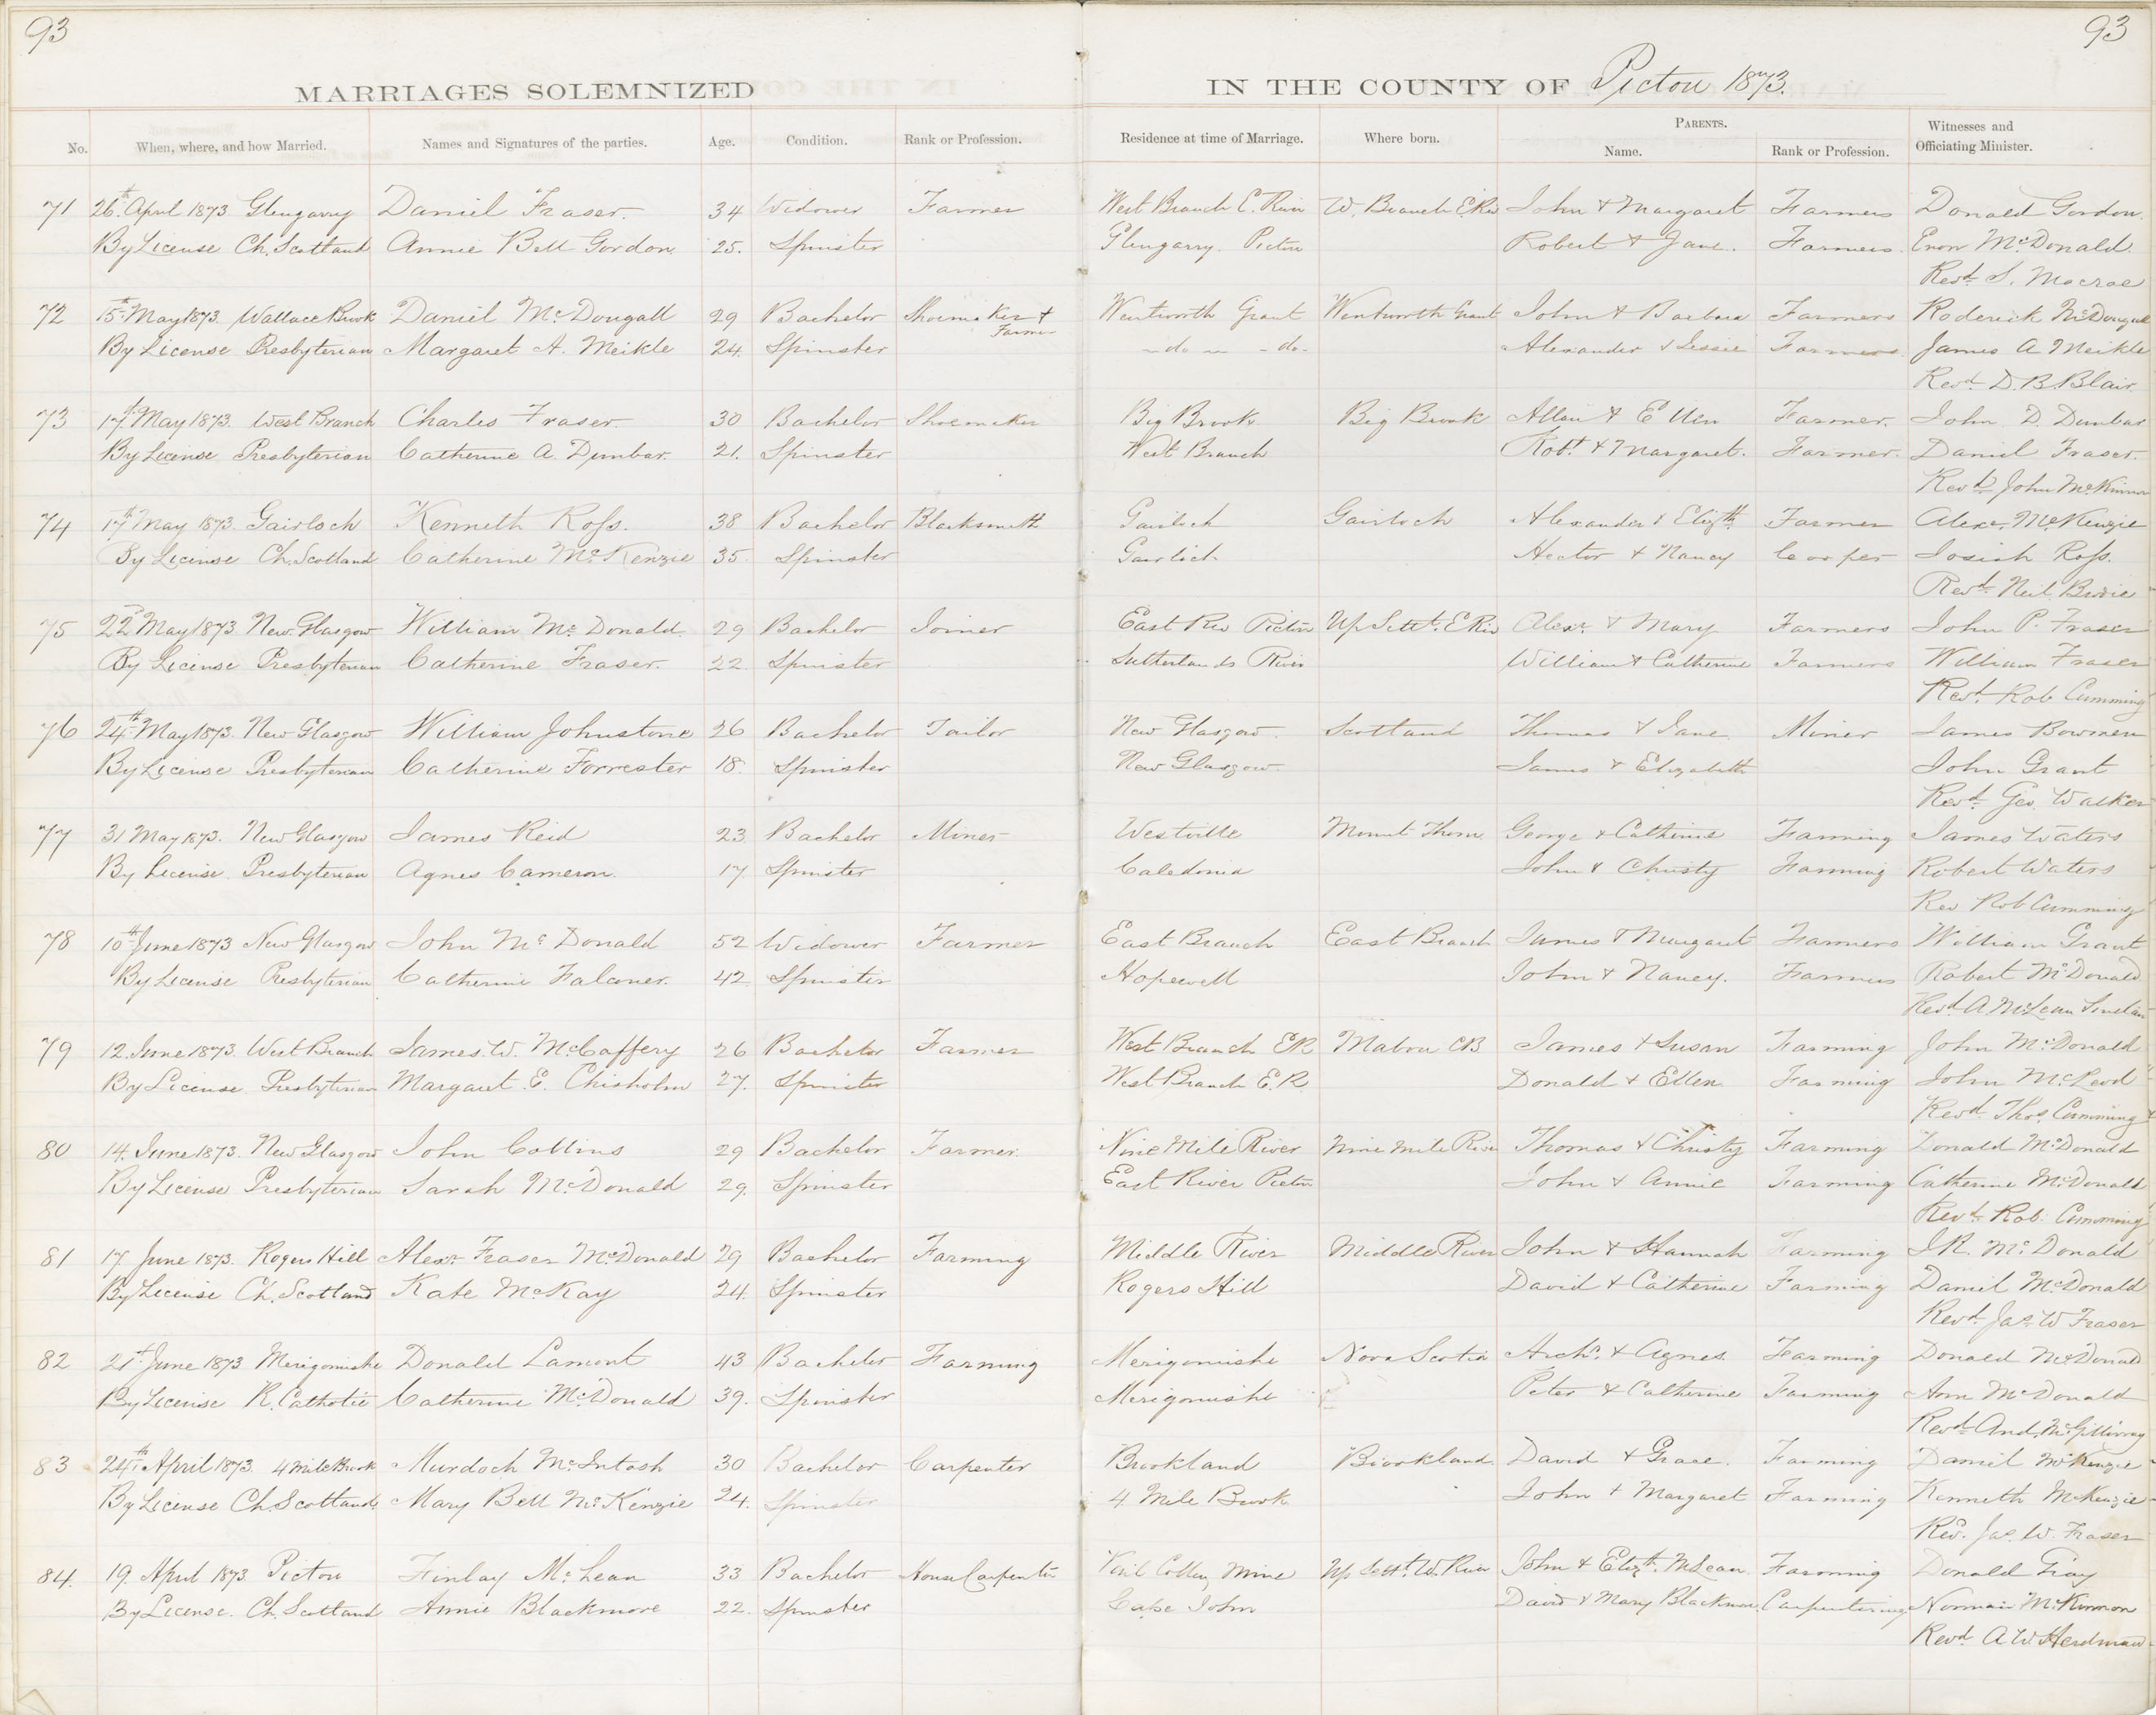 93
93
MARRIAGES SOLEMNIZED IN THE COUNTY OF Pictou 1873.
No. When, where, and how Married. Names and Signatures of the parties. Age. Condition. Rank or Profession. Residence at time of Marriage. Where born. PARENTS. Name. Rank or Profession. Witnesses and Officiating Minister.
71 26th April 1873 Glengarry Daniel Fraser. 34 Widower Farmer West Branch E. River W. Branch E. Riv John & Margaret Farmers Donald Gordon.
By License Ch. Scotland Annie Bell Gordon 25. Spinster Glengarry. Pictou Robert & Jane. Farmers. Enon McDonald.
Revd. S. Macrae
72 15th May 1873. Wallace Brook Daniel McDougall 29 Bachelor Shoemaker & Farmer Wentworth Grant Wentworth Grant John & Barbara Farmers Roderick McDougall
By License Presbyterian Margaret A. Meikle 24. Spinster - do - - do - Alexander & Jessie Farmers James A Meikle
Revd. D. B. Blair
73 17th May 1873. West Branch Charles Fraser. 30 Bachelor Shoemaker Big Brook Big Brook Allan & Ellen Farmer. John D. Dunbar
By License Presbyterian Catherine A. Dunbar. 21. Spinster West Branch Robt. & Margaret. Farmer. Daniel Fraser.
Revd. John McKinnon
74 17th May 1873. Gairloch Kenneth Ross. 38 Bachelor Blacksmith Gairloch Gairloch Alexander & Elizth. Farmer Alexr. McKenzie
By License Ch. Scotland Catherine McKenzie 35 Spinster Gairloch Hector & Nancy Cooper Josiah Ross.
Revd. Neil Brodie
75 22nd May 1873 New Glasgow William McDonald. 29 Bachelor Joiner East Riv Pictou Up Settt. E Riv Alexr. & Mary Farmers John P. Fraser
By License Presbyterian Catherine Fraser. 22. Spinster Sutherlands River William & Catherine Farmers William Fraser
Revd. Rob Cumming
76 24th May 1873. New Glasgow William Johnstone 26 Bachelor Tailor New Glasgow. Scotland Thomas & Jane Miner James Bowmen
By License Presbyterian Catherine Forrester 18. Spinster New Glasgow. James & Elizabeth John Grant
Revd. Geo. Walker
77 31 May 1873. New Glasgow James Reid 23. Bachelor Miner Westville Mount Thom George & Catherine Farming James Waters
By License Presbyterian Agnes Cameron. 17 Spinster Caledonia John & Christy Farming Robert Waters
Rev Rob Cumming
78 10th June 1873 New Glasgow John McDonald 52 Widower Farmer East Branch East Branch James & Margaret Farmers William Grant
By License Presbyterian Catherine Falconer. 42 Spinster Hopewell John & Nancy. Farmers Robert McDonald
Revd. A McLean Sinclair
79 12. June 1873. West Branch James. W. McCaffery 26 Bachelor Farmer West Branch ER Mabou CB James & Susan Farming John McDonald
By License Presbyterian Margaret E. Chisholm 27. Spinster West Branch E. R Donald & Ellen Farming John McLeod
Revd. Thos. Cumming
80 14. June 1873. New Glasgow John Collins 29 Bachelor Farmer. Nine Mile River Nine Mile River Thomas & Christy Farming Donald McDonald
By License Presbyterian Sarah McDonald 29. Spinster East River Pictou John & Annie Farming Catherine McDonald
Revd. Rob. Cumming
81 17 June 1873. Rogers Hill Alexr. Fraser McDonald 29 Bachelor Farming Middle River Middle River John & Hannah Farming J. R. McDonald
By License Ch. Scotland Kate McKay 24. Spinster Rogers Hill David & Catherine Farming Daniel McDonald
Revd. Jas. W Fraser
82 21st June 1873 Merigomishe Donald Lamont 43 Bachelor Farming Merigomishe Nova Scotia Archd. & Agnes. Farming Donald McDonald
By License R. Catholic Catherine McDonald 39. Spinster Merigomishe Peter & Catherine Farming Ann McDonald
Revd. And. McGillivray
83 24th April 1873. 4 Mile Brook Murdoch McIntosh 30 Bachelor Carpenter Brookland Brookland. David & Grace. Farming Daniel McKenzie
By License Ch. Scotland Mary Bell McKenzie 24. Spinster 4 Mile Brook John & Margaret Farming Kenneth McKenzie
Rev. Jas. W. Fraser
84. 19. April 1873 Pictou Finlay McLean 33 Bachelor House Carpenter Colley Mine Up Sett. W. River John & Elizth. McLean Farming Donald Gray
By License. Ch. Scotland Annie Blackmore 22. Spinster Cape John David & Mary Blackmore. Carpentering Norman McKinnon
Revd. A. W. Herdman